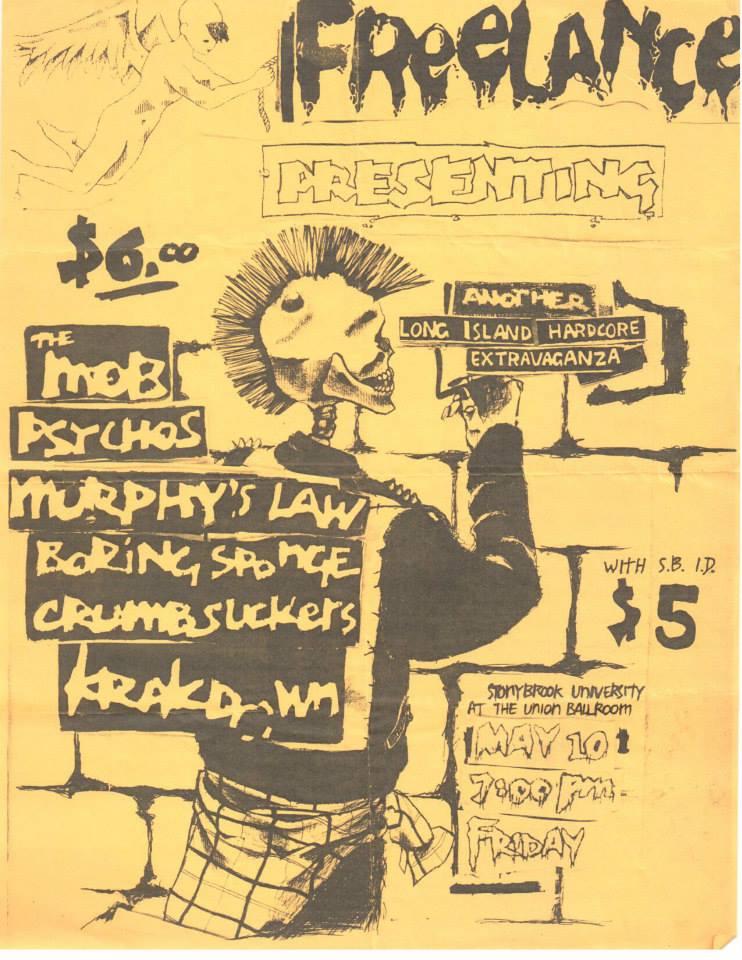 FReeLANce
PRESENTING
$6.00
ANOTHER
LONG ISLAND HARDCORE
EXTRAVAGANZA
THE
MOB
PSYCHOS
MURPHY'S LAW
BORING SPONGE
CRUMBSUCKERS
KRAKDOWN
WITH S.B. I.D.
$5
STONYBROOK UNIVERSITY
AT THE UNION BALLROOM
MAY 10
7:00 P.M.
FRIDAY